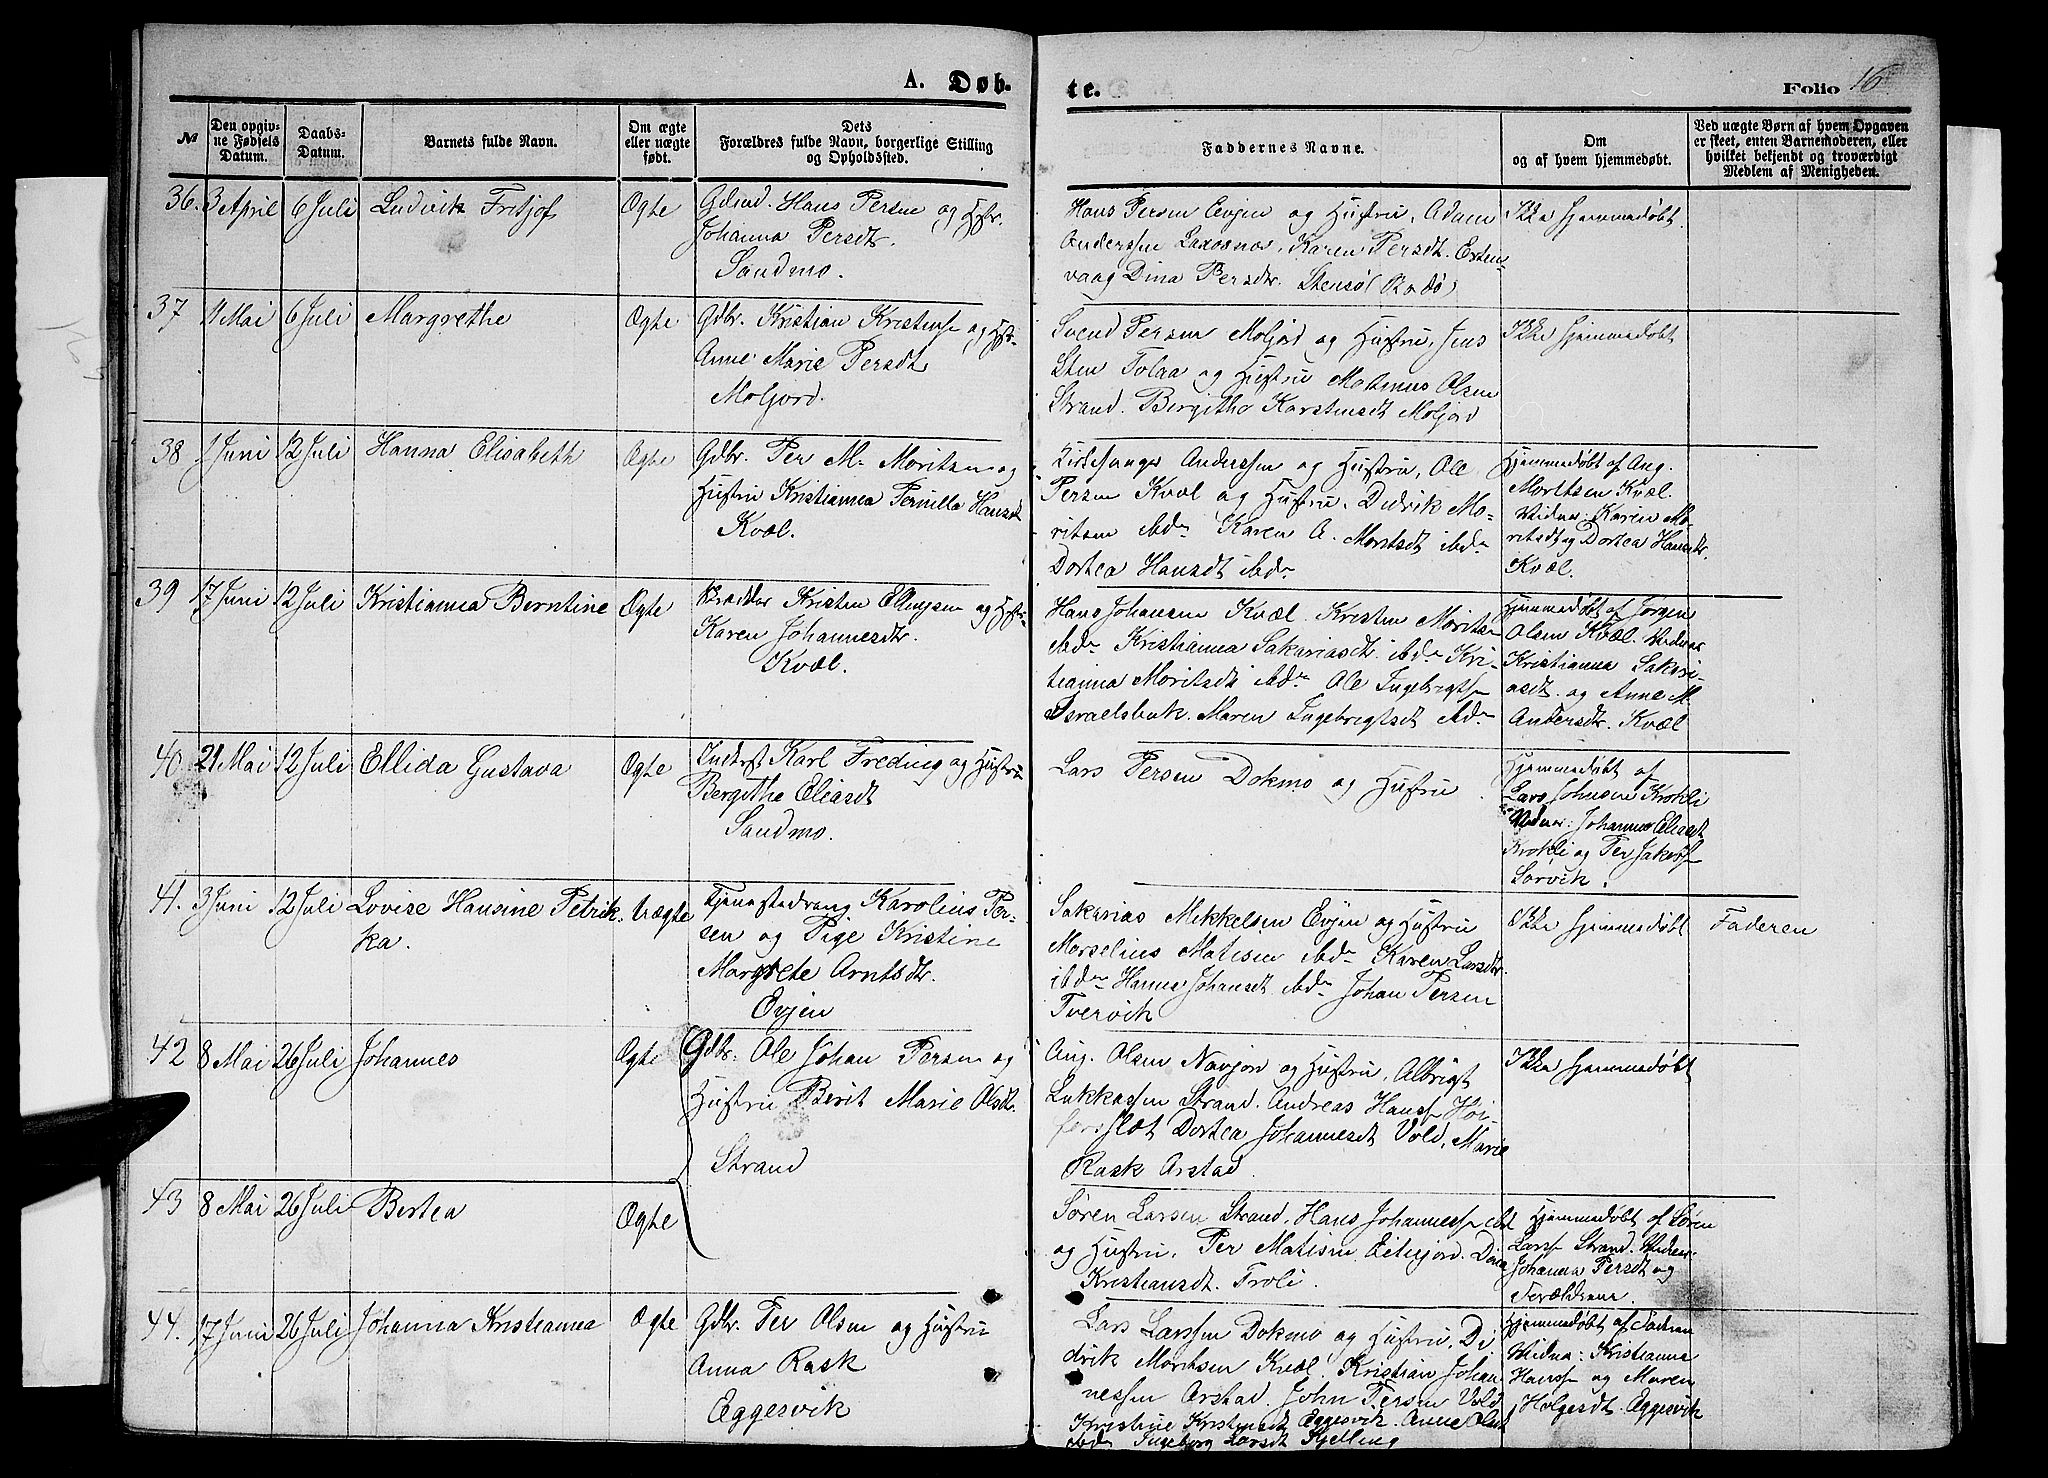 A. Døb.
te.
Folio 16
№
Den opgiv-
ne Fødsels
Datum.
Daabs-
Datum.
Barnets fulde Navn.
Om ægte
eller uægte
født.
Dets
Forældres fulde Navn, borgerlige Stilling
og Opholdssted.
Faddernes Navne.
Om
og af hvem hjemmedøbt.
Ved uægte Børn af hvem Opgaven
er skeet, enten Barnemoderen, eller
hvilket bekjendt og troværdigt
Medlem af Menigheden.
36. 3 April 6 Juli Ludvik Fritjof Ægte
Gdmd. Hans Persen og Hstr.
Johanna Persdtr.
Sandmo.
Hans Persen Evjen og Hustru, Adam
Anderssen Laxosnos, Karen Persdt. Esten-
vaag Dina Persdtr. Stensø (Rødø)
Ikke hjemmedøbt.
37 11 Mai 6 Juli Margrethe Ægte
Gdbr. Kristian Kristens og Hstr.
Anne Marie Persdt
Moljord.
Svend Persen Moljord og Hustru, Jens
Sten Tolaa og Hustru Matmus Olsen
Strand. Bergitha Karstensdt Moljord
Ikke hjemmedøbt
38 1 Juni 12 Juli Hanna Elisabeth Ægte
Gdbr. Per M. Moritsen og
Hustru Kristianna Pernilla Hansdt
Kvæl.
Kirkesanger Anderssen og Hustru, Ole
Persen Kvæl og Hustru. Didrik Mo-
ritsen ibdm Karen A. Moritsdt ibdm
Dortea Hansdt ibdm
Hjemmedøbt af Aug.
Moritsen Kvæl.
Vidner: Karen Mo-
ritsdt og Dortea Hansdtr.
Kvæl.
39 17 Juni 12 Juli Kristianna Berntine Ægte
Kristen Ellingsen og Hstr.
Karen Johannesdtr.
Kvæl.
Hans Johansen Kvæl. Kristen Moritsen
ibdm Kristianna Sakariasdt. ibdm Kri-
tianna Moritsdt ibdm Ole Ingebrigts
Israelsbak. Maren Ingebrigtsdt ibdm
Hjemmedøbt af Jørgen
Olsen Kvæl. Vidner
Kristianna Sakari-
asdt. og Anne M.
Andersdtr. Kvæl
40 21 Mai 12 Juli Ellida Gustava Ægte
Inderst Karl Freding og Hustru
Bergithe Eliasdt
Sandmo.
Lars Persen Dokmo og Hustru.
Hjemmedøbt af
Lars Johnsen Krokli
Vidner: Johanna Eliasdt
Krokli og Per Jakobs
Sørvik.
41. 3 Juni 12 Juli Lovise Hansine Petrik- Uægte
ka.
Tjenestedreng Karolius Per-
sen og Pige Kristine
Margrete Arntsdtr.
Evjen
Sakarias Mikkelsen Evjen og Hustru
Morselius Matisen ibdm Karen Larsdtr.
ibdm Hanna Johansdt ibdm Johan Persen
Tvervik
Ikke hjemmedøbt
Faderen
42 8 Mai 26 Juli Johannes Ægte
Gdbr. Ole Johan Persen og
Hustru Berit Marie Olsdtr.
Strand
Aug. Olsen Navjord og Hustru, Albrigt
Lukkassen Strand. Andreas Hanss Høi-
forsslæt Dortea Johannesdt Vold, Marie
Rask Arstad.
Ikke hjemmedøbt
43 8 Mai 26 Juli Bertea Ægte
Søren Larsen Strand, Hans Johanness ibd
og Hustru, Per Matisen Eiterjord. Dina
Kristiansdt. Troli.
Hjemmedøbt af Søren
Larss Strand. Vidner
Johanna Persdt og
Forældrene.
44. 17 Juni 26 Juli Johanna Kristianna Ægte
Gdbr. Per Olsen og Hustru
Anna Rask
Eggesvik
Lars Larssen Dokmo og Hustru, Di-
drik Moritsen Kvæl. Kristian Johan-
nessen Arstad. John Persen Vold
Kristine Kristensdt Eggesvik. Anne Olsdt
ibdm Ingeborg Larsdt Kjelling
Hjemmedøbt af Faderen
Vidner: Kristianna
Hanss og Maren
Holgersdt. Eggesvik